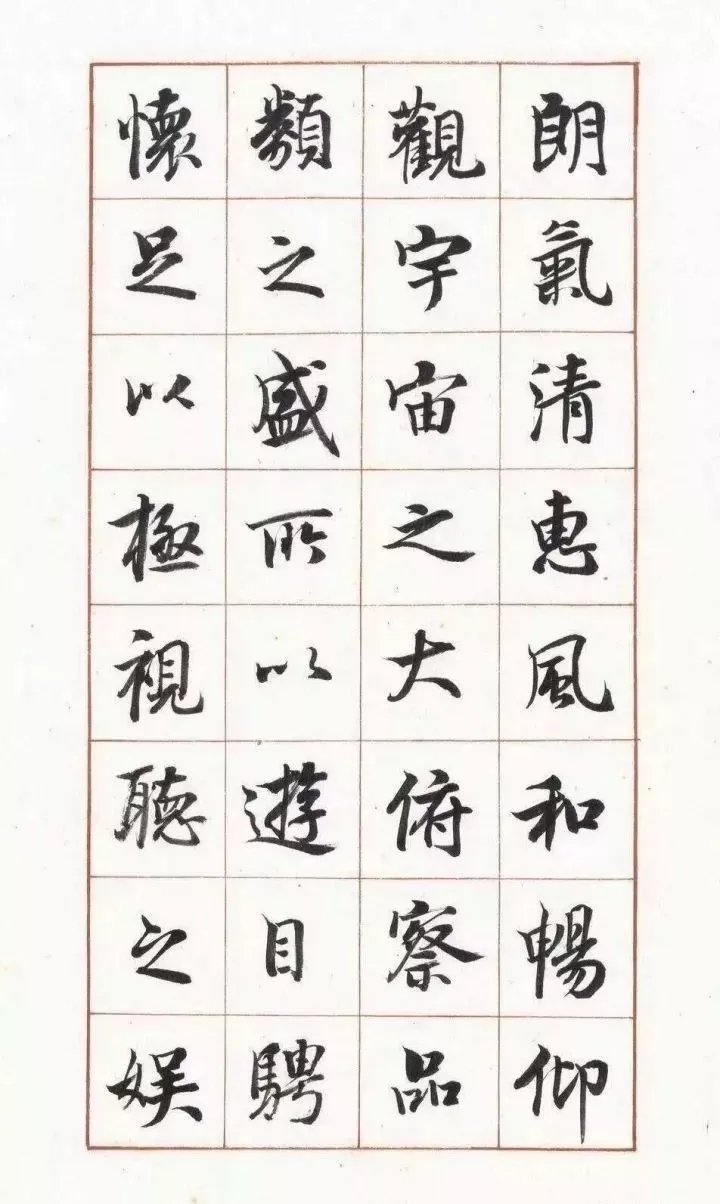 朗氣清惠風和暢仰
觀宇宙之大俯察品
類之盛所以遊目騁
懷足以極視聽之娛